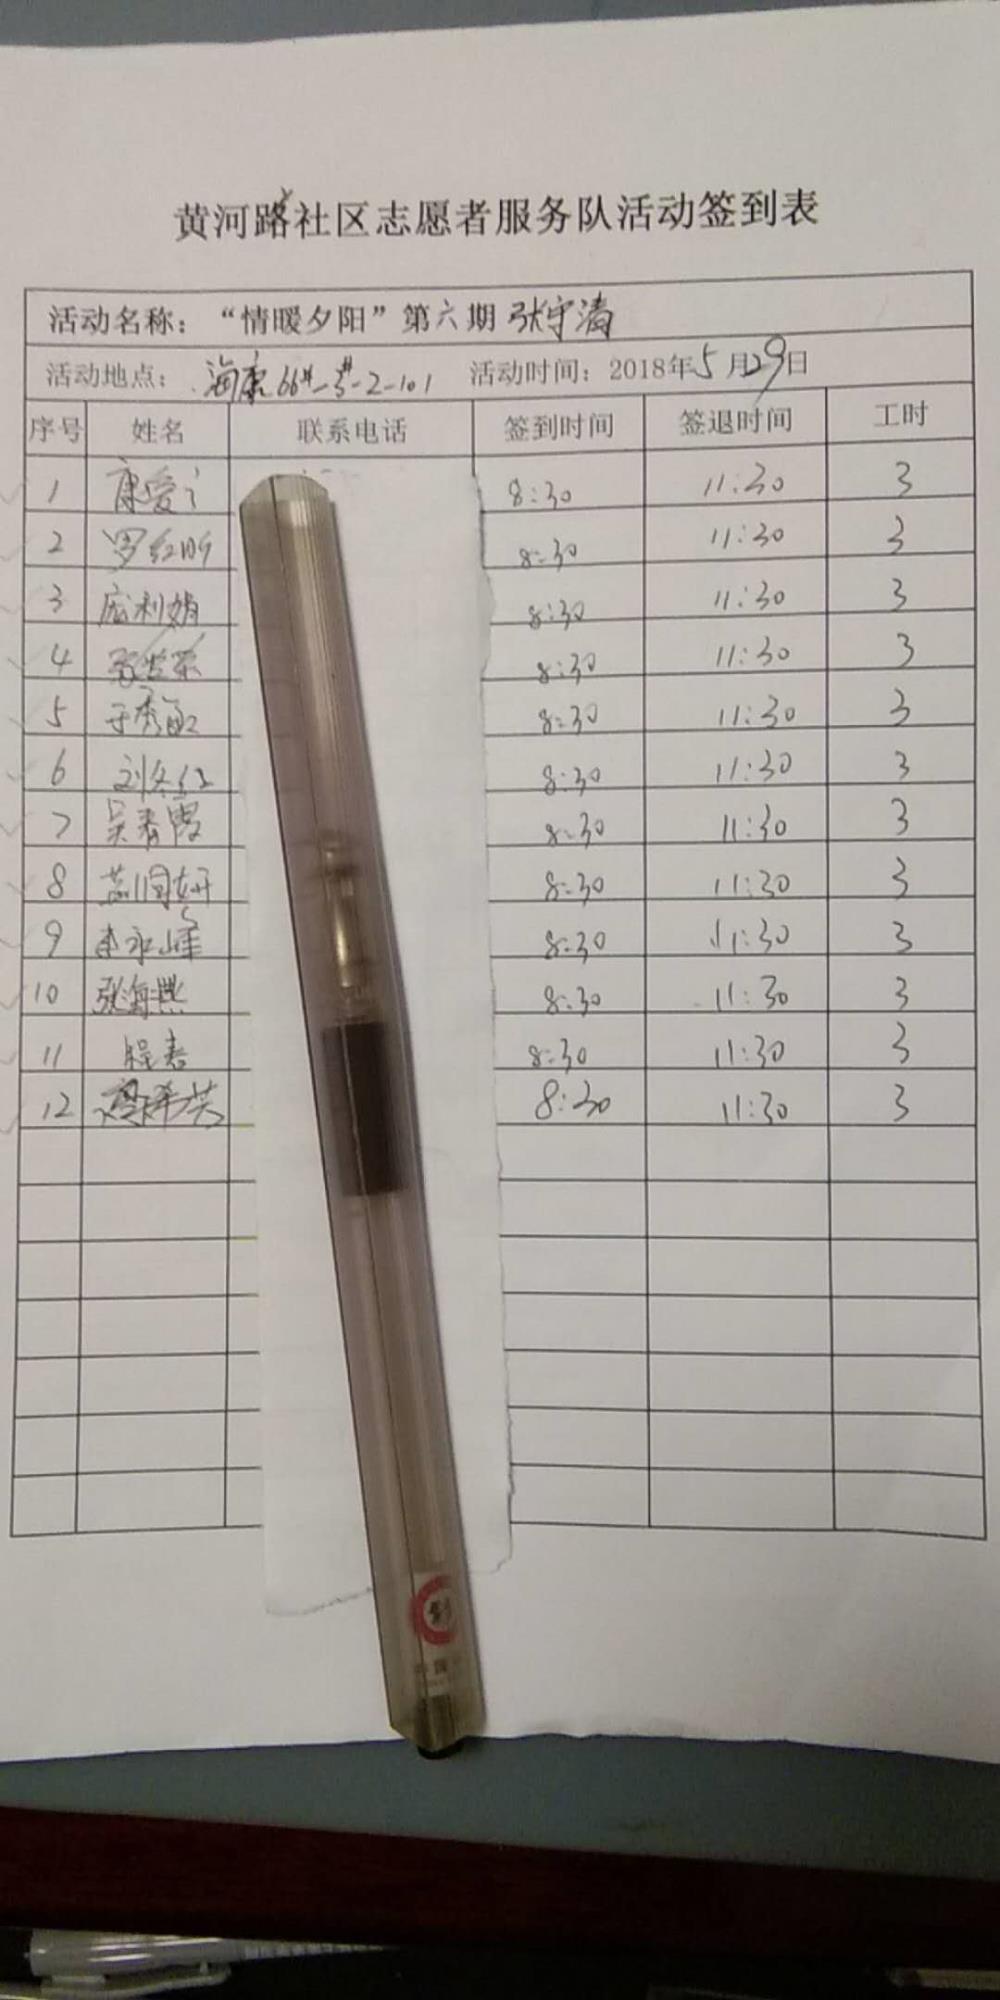 黄河路社区志愿者服务队活动签到表
活动名称：“情暖夕阳”第六期 张宇清
活动地点：海康66#-3#-2-101 活动时间：2018年5月29日
序号 姓名 联系电话 签到时间 签退时间 工时
1 康爱 8:30 11:30 3
2 罗红 8:30 11:30 3
3 庞利娟 8:30 11:30 3
4 8:30 11:30 3
5 于秀 8:30 11:30 3
6 刘冬红 8:30 11:30 3
7 吴春霞 8:30 11:30 3
8 8:30 11:30 3
9 李永峰 8:30 11:30 3
10 张海燕 8:30 11:30 3
11 程春 8:30 11:30 3
12 8:30 11:30 3